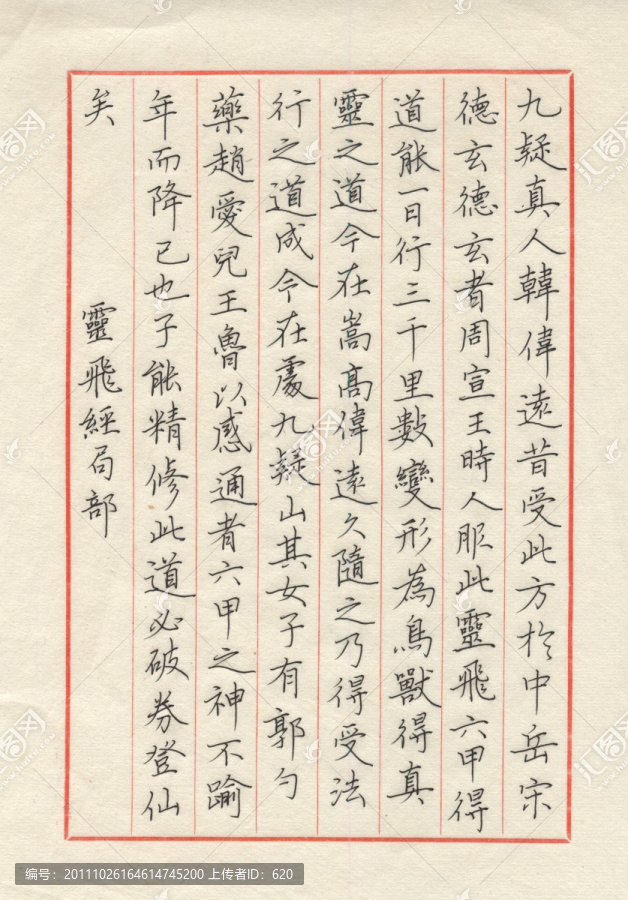 九疑真人韓偉遠昔受此方於中岳宋
德玄德玄者周宣王時人服此靈飛六甲得
道能一日行三千里數變形為鳥獸得真
靈之道今在嵩高偉遠久隨之乃得受法
行之道成今在處九疑山其女子有郭勺
藥趙愛兒王魯以感通者六甲之神不踰
年而降已也子能精修此道必破券登仙
矣 靈飛經局部
编号：20111026164614745200 上传者ID：620
汇图网